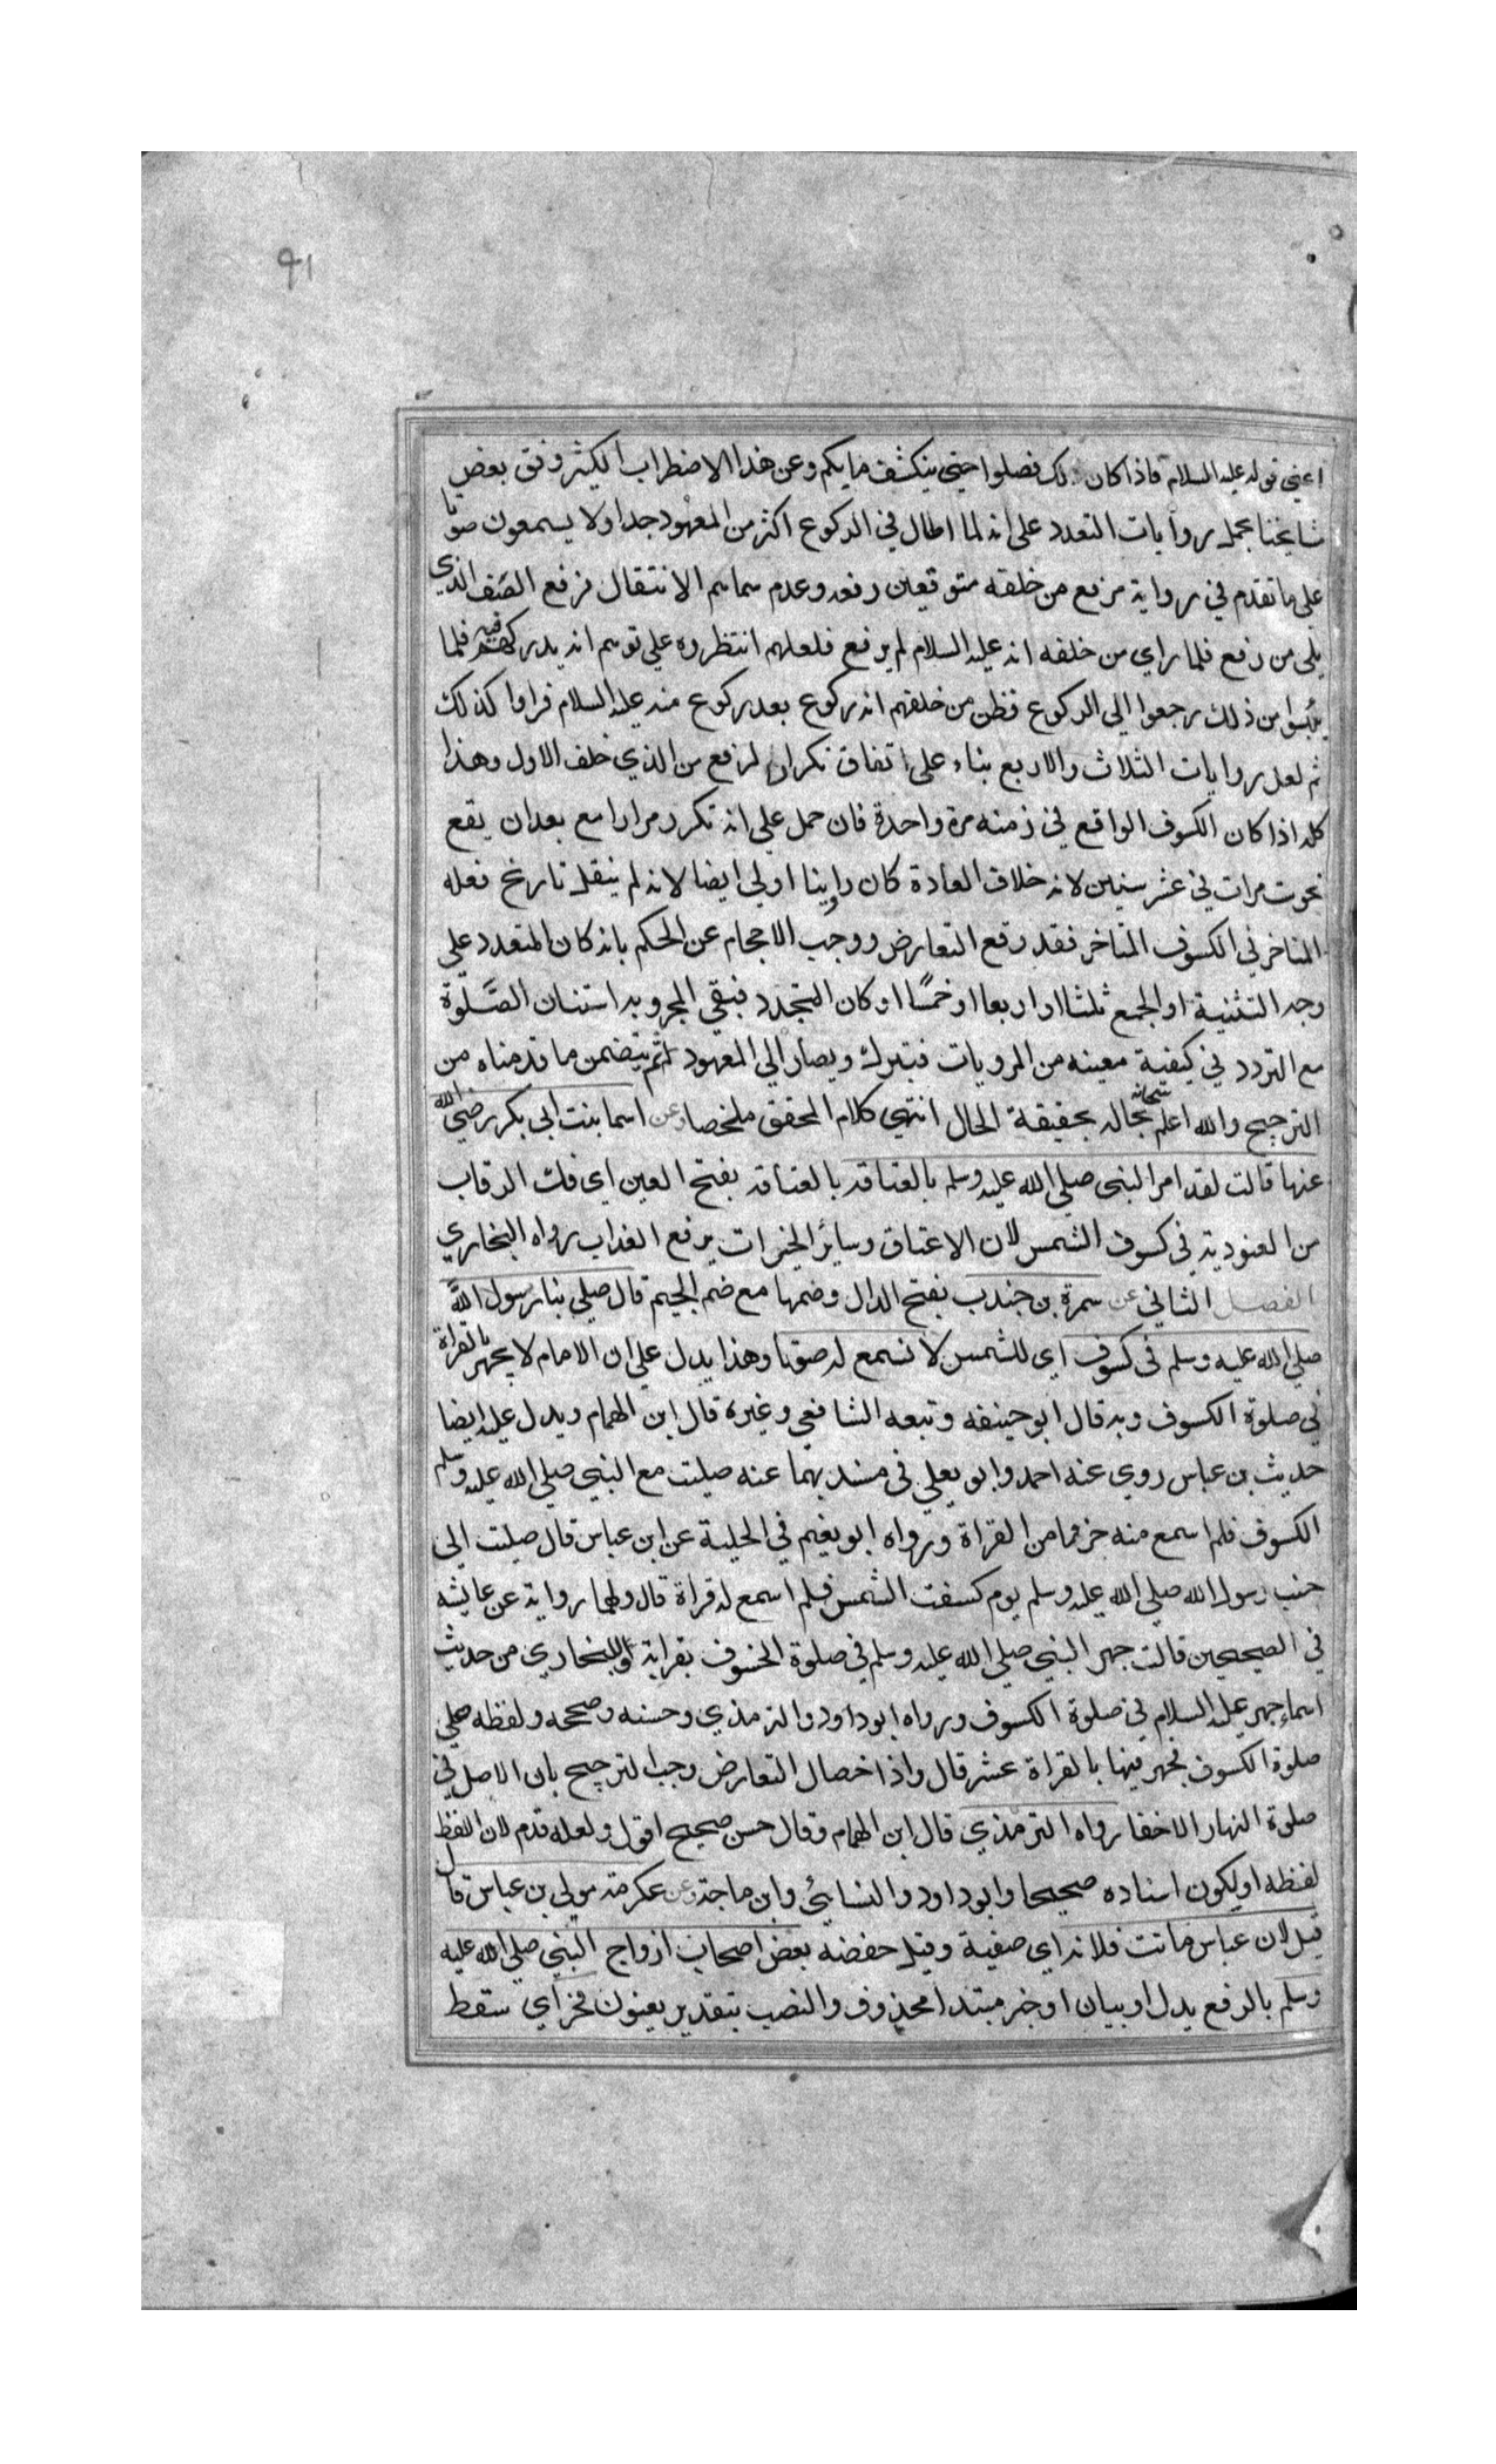 ٩١
اعني قوله عليه السلام فاذا كان ذلك فصلوا حتى ينكشف ما بكم وعن هذا الاضطراب الكثير وفق بعض
شايخنا بحمل روايات التعدد على انه لما اطال في الركوع اكثر من المعهود جدا ولا يسمعون صوتا
على ما تقدم في رواية مزفع من خلقه متوقعين رفعه وعدم سماسم الانتقال فرفع الصف الذي
يلي من رفع فلما راي من خلفه انه عليه السلام لم يرفع فلعلهم انتظروه على توسم انه يدركهم فيه فلما
يئسوا من ذلك رجعوا الي الركوع فظن من خلفهم انه ركوع بعد ركوع منه عليه السلام فراوا كذلك
ثم لعل روايات الثلاث والاربع بناء على اتفاق تكرار لرفع من الذي خلف الاول وهذا
كله اذا كان الكسوف الواقع في زمنه مرة واحدة فان حمل على انه تكرر مرارا مع بعد ان يقع
نحوت مرات في عشر سنين لانه خلاف العادة كان راينا اولي ايضا لانه لم ينقل تاريخ فعله
المتاخر في الكسوف المتاخر فقد رقع التعارض ووجب الاحجام عن الحكم بانه كان المتعدد على
وجه التثنية او الجمع ثلثا او اربعا او خمسًا او كان المتجدد فبقي المجرو به استنان الصَّلوة
مع التردد في كيفية معينه من المرويات فيترك ويصار الي المعهود ثم يتضمن ما قدمناه من
الترجيح والله سبحانه اعلم بحاله بحقيقة الحال انتهي كلام المحقق ملخصا وعن اسما بنت ابي بكر رضي الله
عنها قالت لقد امر النبى صلي الله عليه وسلم بالعتاقه بالعتاقه بفتح العين اى فك الرقاب
من العبودية في كسوف الشمس لان الاعتاق وسائر الخيرات يرفع العذاب رواه البخاري
الفصل الثاني عن سمرة بن جندب بفتح الدال وضمها مع ضم الجيم قال صلي بنا رسول اللّه
صلي الله عليه وسلم فى كسوف اي للشمس لا نسمع له صوتا وهذا يدل علي ان الامام لا يجهر بالقراة
في صلوة الكسوف وبه قال ابو حنيفه وتبعه الشافعي وغيره قال ابن الهمام ويدل عليه ايضا
حديث بن عباس روي عنه احمد وابو يعلي فى مسنديهما عنه صليت مع النبي صلي الله عليه وسلم
الكسوف فلم اسمع منه حرفا من القراة ورواه ابو نعيم في الحلية عن ابن عباس قال صليت الى
جنب رسول الله صلي الله عليه وسلم يوم كسفت الشمس فلم اسمع له قراة قال ولهما رواية عن عايشه
في الصحيحين قالت جهر النبي صلي الله عليه وسلم في صلوة الخسوف بقرايته وللبخاري من حديث
اسماء جهر عليه السلام في صلوة الكسوف ورواه ابو داود والترمذي وحسنه وصححه ولفظه صلي
صلوة الكسوف فجهر فيها بالقراة عشر قال واذا حصل التعارض وجب الترجيح بان الاصل في
صلوة النهار الاخفا رواه الترمذي قال ابن الهمام وقال حسن صحيح اقول ولعله قدم لان اللفظ
لفظه او لكون اسناده صحيحا وابو داود والنسائي وابن ماجة وعن عكرمة مولي بن عباس قال
قيل لابن عباس ماتت فلانه اي صفية وقيل حفصه بعض اصحاب ازواج النبي صلي الله عليه
وسلم بالرفع بدل او بيان او خبر مبتدا محذوف والنصب بتقدير يعنون فخر اي سقط